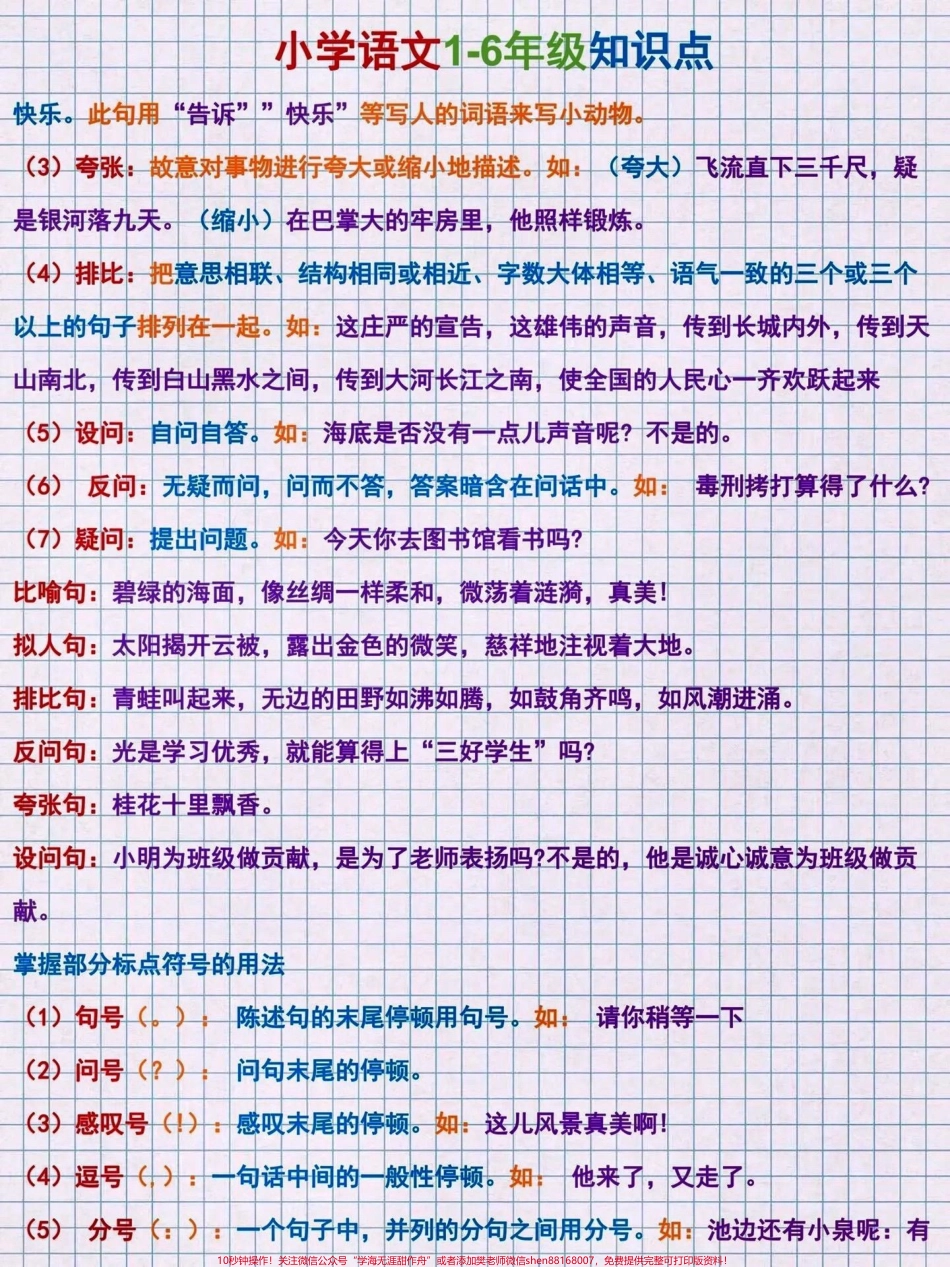 小学语文1-6年级知识点
快乐。此句用“告诉””快乐”等写人的词语来写小动物。
（3）夸张：故意对事物进行夸大或缩小地描述。如：（夸大）飞流直下三千尺，疑
是银河落九天。（缩小）在巴掌大的牢房里，他照样锻炼。
（4）排比：把意思相联、结构相同或相近、字数大体相等、语气一致的三个或三个
以上的句子排列在一起。如：这庄严的宣告，这雄伟的声音，传到长城内外，传到天
山南北，传到白山黑水之间，传到大河长江之南，使全国的人民心一齐欢跃起来
（5）设问：自问自答。如：海底是否没有一点儿声音呢？不是的。
（6） 反问：无疑而问，问而不答，答案暗含在问话中。如： 毒刑拷打算得了什么?
（7）疑问：提出问题。如：今天你去图书馆看书吗?
比喻句：碧绿的海面，像丝绸一样柔和，微荡着涟漪，真美！
拟人句：太阳揭开云被，露出金色的微笑，慈祥地注视着大地。
排比句：青蛙叫起来，无边的田野如沸如腾，如鼓角齐鸣，如风潮进涌。
反问句：光是学习优秀，就能算得上“三好学生”吗?
夸张句：桂花十里飘香。
设问句：小明为班级做贡献，是为了老师表扬吗?不是的，他是诚心诚意为班级做贡
献。
掌握部分标点符号的用法
（1）句号（。）： 陈述句的末尾停顿用句号。如： 请你稍等一下
（2）问号（？）： 问句末尾的停顿。
（3）感叹号（!）：感叹末尾的停顿。如：这儿风景真美啊!
（4）逗号（,）：一句话中间的一般性停顿。如： 他来了，又走了。
（5） 分号（：）：一个句子中，并列的分句之间用分号。如：池边还有小泉呢：有
10秒钟操作！关注微信公众号“学海无涯甜作舟”或者添加樊老师微信shen88168007，免费提供完整可打印版资料！